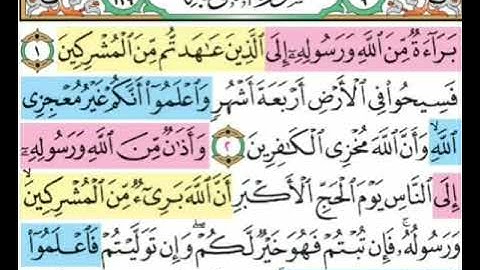 بَرَآءَةٌ مِّنَ ٱللَّهِ وَرَسُولِهِۦٓ إِلَى ٱلَّذِينَ عَـٰهَدتُّم مِّنَ ٱلْمُشْرِكِينَ ١
فَسِيحُوا۟ فِى ٱلْأَرْضِ أَرْبَعَةَ أَشْهُرٍ وَٱعْلَمُوٓا۟ أَنَّكُمْ غَيْرُ مُعْجِزِى
ٱللَّهِ ۙ وَأَنَّ ٱللَّهَ مُخْزِى ٱلْكَـٰفِرِينَ ٢ وَأَذَٰنٌ مِّنَ ٱللَّهِ وَرَسُولِهِۦٓ
إِلَى ٱلنَّاسِ يَوْمَ ٱلْحَجِّ ٱلْأَكْبَرِ أَنَّ ٱللَّهَ بَرِىٓءٌ مِّنَ ٱلْمُشْرِكِينَ ۙ
وَرَسُولُهُۥ ۚ فَإِن تُبْتُمْ فَهُوَ خَيْرٌ لَّكُمْ ۖ وَإِن تَوَلَّيْتُمْ فَٱعْلَمُوٓا۟